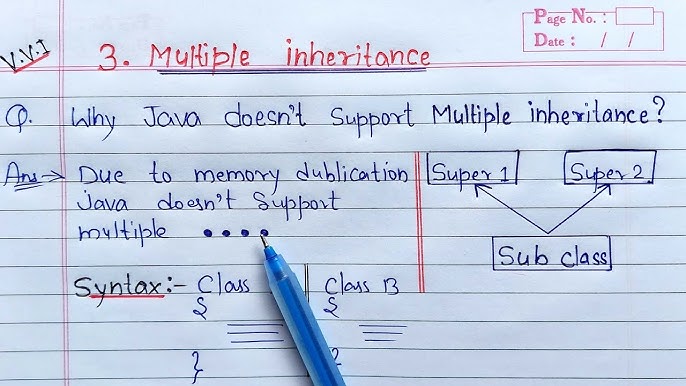 Page No.:
Date : / /
V.V.I
3. Multiple inheritance
Q. Why Java doesn't Support Multiple inheritance?
Ans → Due to memory dublication
Java doesn't Support
multiple
Super 1
Super 2
Sub class
Syntax:- Class
Class B
{
{
}